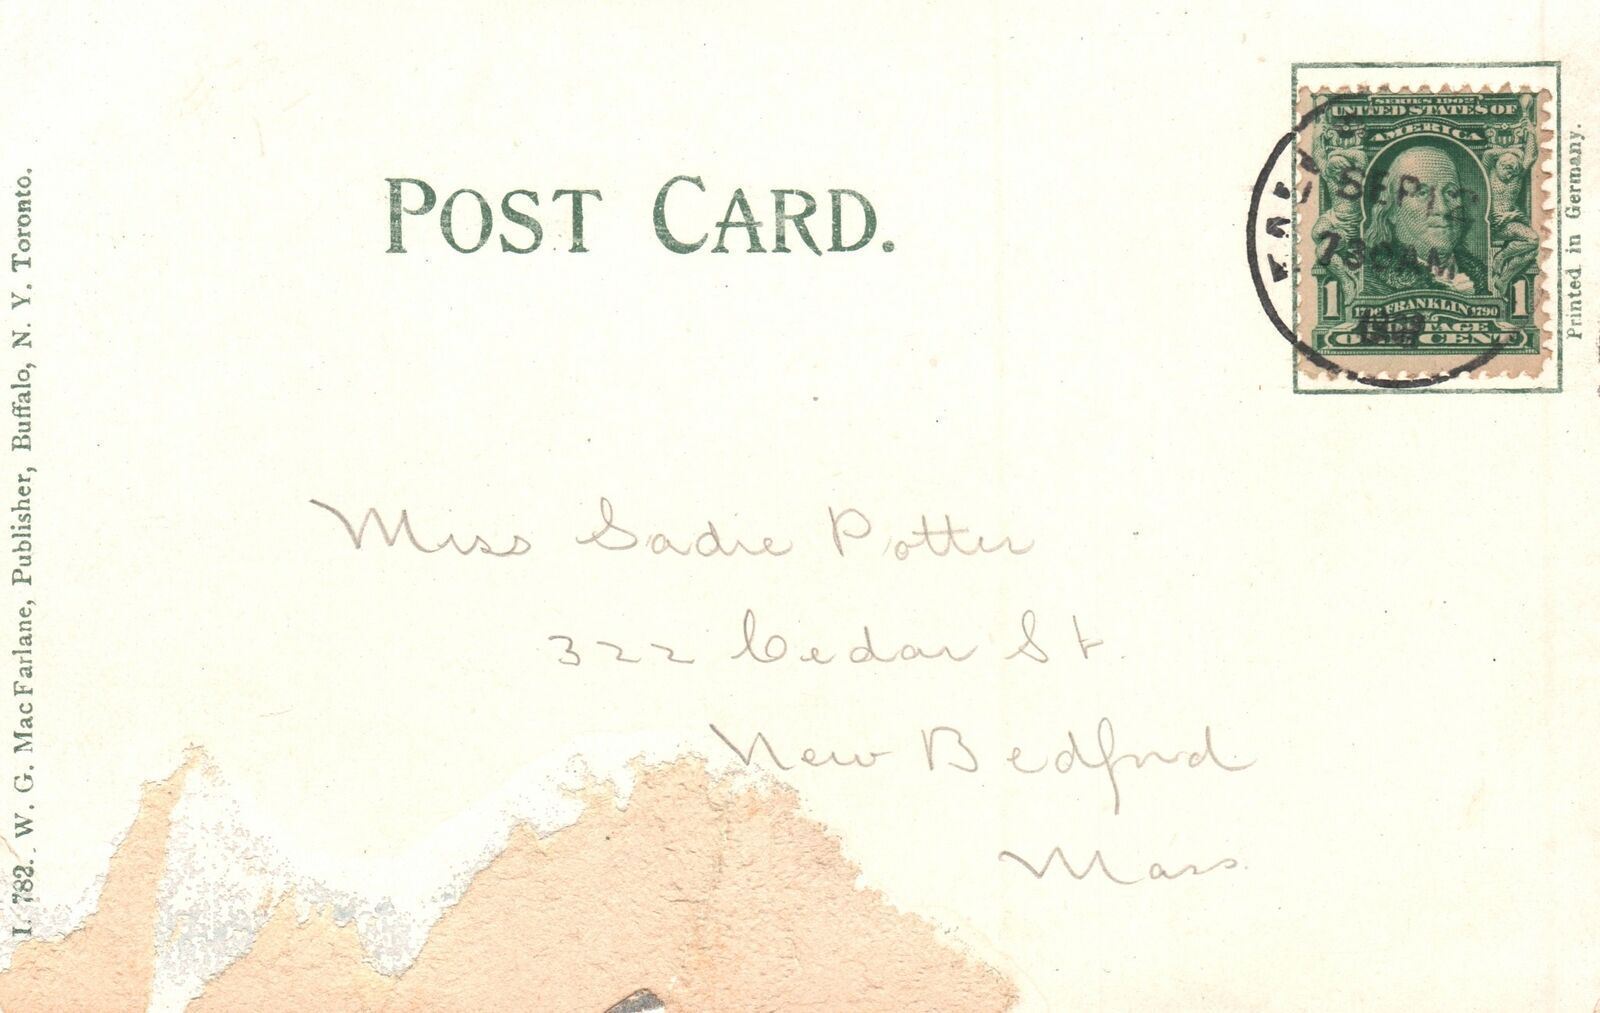 POST CARD.
SERIES 1902
UNITED STATES OF
AMERICA
1 FRANKLIN 1790 1
POSTAGE
ONE CENT
SEP 12
7 30 AM
Printed in Germany.
Miss Sadie Potter
322 Cedar St.
New Bedford
Mass.
I. 782. W. G. MacFarlane, Publisher, Buffalo, N. Y. Toronto.